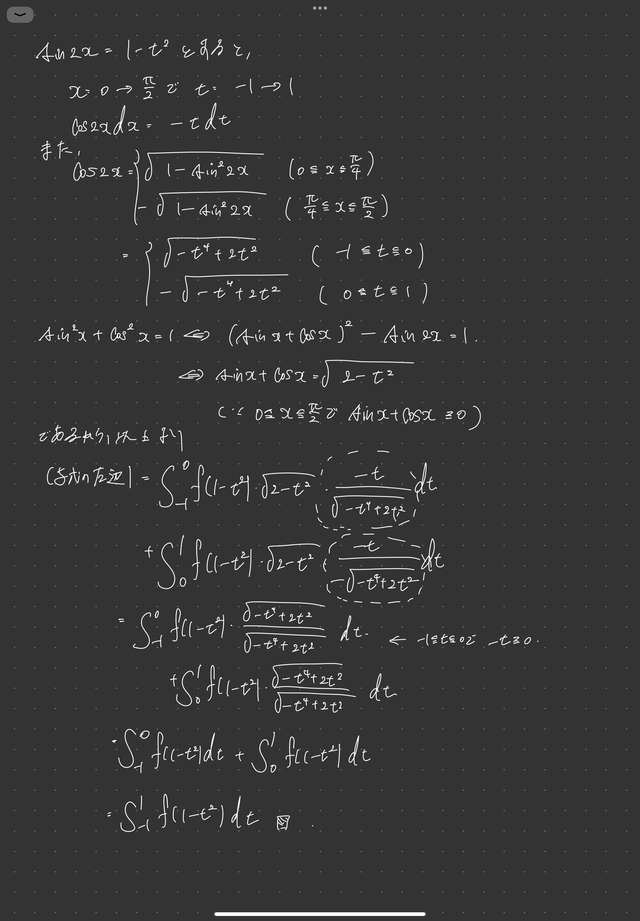 sin2x = 1-t² とすると,
x = 0 → π/2 で t = -1 → 1
cos2x dx = -t dt
また,
cos2x = { √(1-sin²2x) (0 ≦ x ≦ π/4)
-√(1-sin²2x) (π/4 ≦ x ≦ π/2)
= { √(-t⁴+2t²) (-1 ≦ t ≦ 0)
-√(-t⁴+2t²) (0 ≦ t ≦ 1)
sin²x + cos²x = 1 ⇔ (sinx + cosx)² - sin2x = 1.
⇔ sinx + cosx = √(2-t²)
(∵ 0 ≦ x ≦ π/2 で sinx + cosx ≧ 0)
であるから, 以上より
(与式の左辺) = ∫_{-1}^{0} f(1-t²)・√(2-t²)・(-t)/√(-t⁴+2t²) dt
+ ∫_{0}^{1} f(1-t²)・√(2-t²)・(-t)/(-√(-t⁴+2t²)) dt
= ∫_{-1}^{0} f(1-t²)・√(-t⁴+2t²)/√(-t⁴+2t²) dt. ← -1≦t≦0で -t≧0.
+ ∫_{0}^{1} f(1-t²)・√(-t⁴+2t²)/√(-t⁴+2t²) dt
= ∫_{-1}^{0} f(1-t²)dt + ∫_{0}^{1} f(1-t²)dt
= ∫_{-1}^{1} f(1-t²) dt